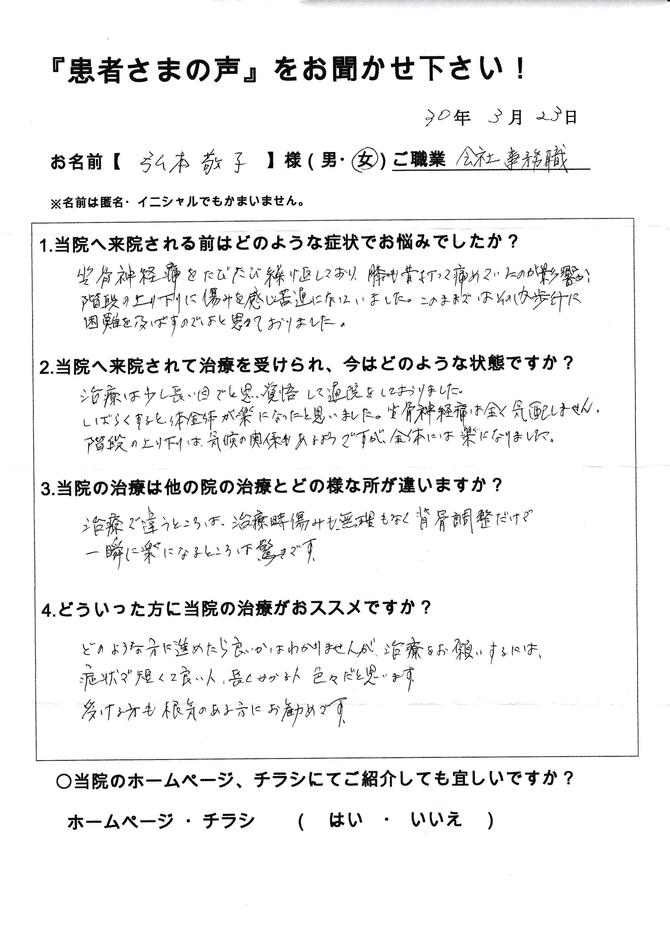 『患者さまの声』をお聞かせ下さい！
30年 3月 23日
お名前【 弘本 敬子 】様（男・女）ご職業 会社事務職
※名前は匿名・イニシャルでもかまいません。
1.当院へ来院される前はどのような症状でお悩みでしたか？
坐骨神経痛をたびたび繰り返しており、膝も昔打って痛めていたのが影響か
階段の上り下りに傷みを感じ苦追になにいました。このままではその内歩行に
困難を及ぼすのではと思えておりました。
2.当院へ来院されて治療を受けられ、今はどのような状態ですか？
治療は少し長い目でと思い覚悟して通院をしておりました。
しばらくすると、体全体が楽になったと思いました。坐骨神経痛は全く気配しません。
階段の上り下りは、気候の関係もあるようですが、全体には楽になりました。
3.当院の治療は他の院の治療とどの様な所が違いますか？
治療で違うところは、治療時傷みも無理もなく背骨調整だけで
一瞬に楽になるところは驚きです
4.どういった方に当院の治療がおススメですか？
どのような方に進めたら良いかはわかりませんが、治療をお願いするには、
症状で短くて良い人、長くかかる人 色々だと思います
受ける方も根気のある方にお勧めです
〇当院のホームページ、チラシにてご紹介しても宜しいですか？
ホームページ ・ チラシ （ はい ・ いいえ ）